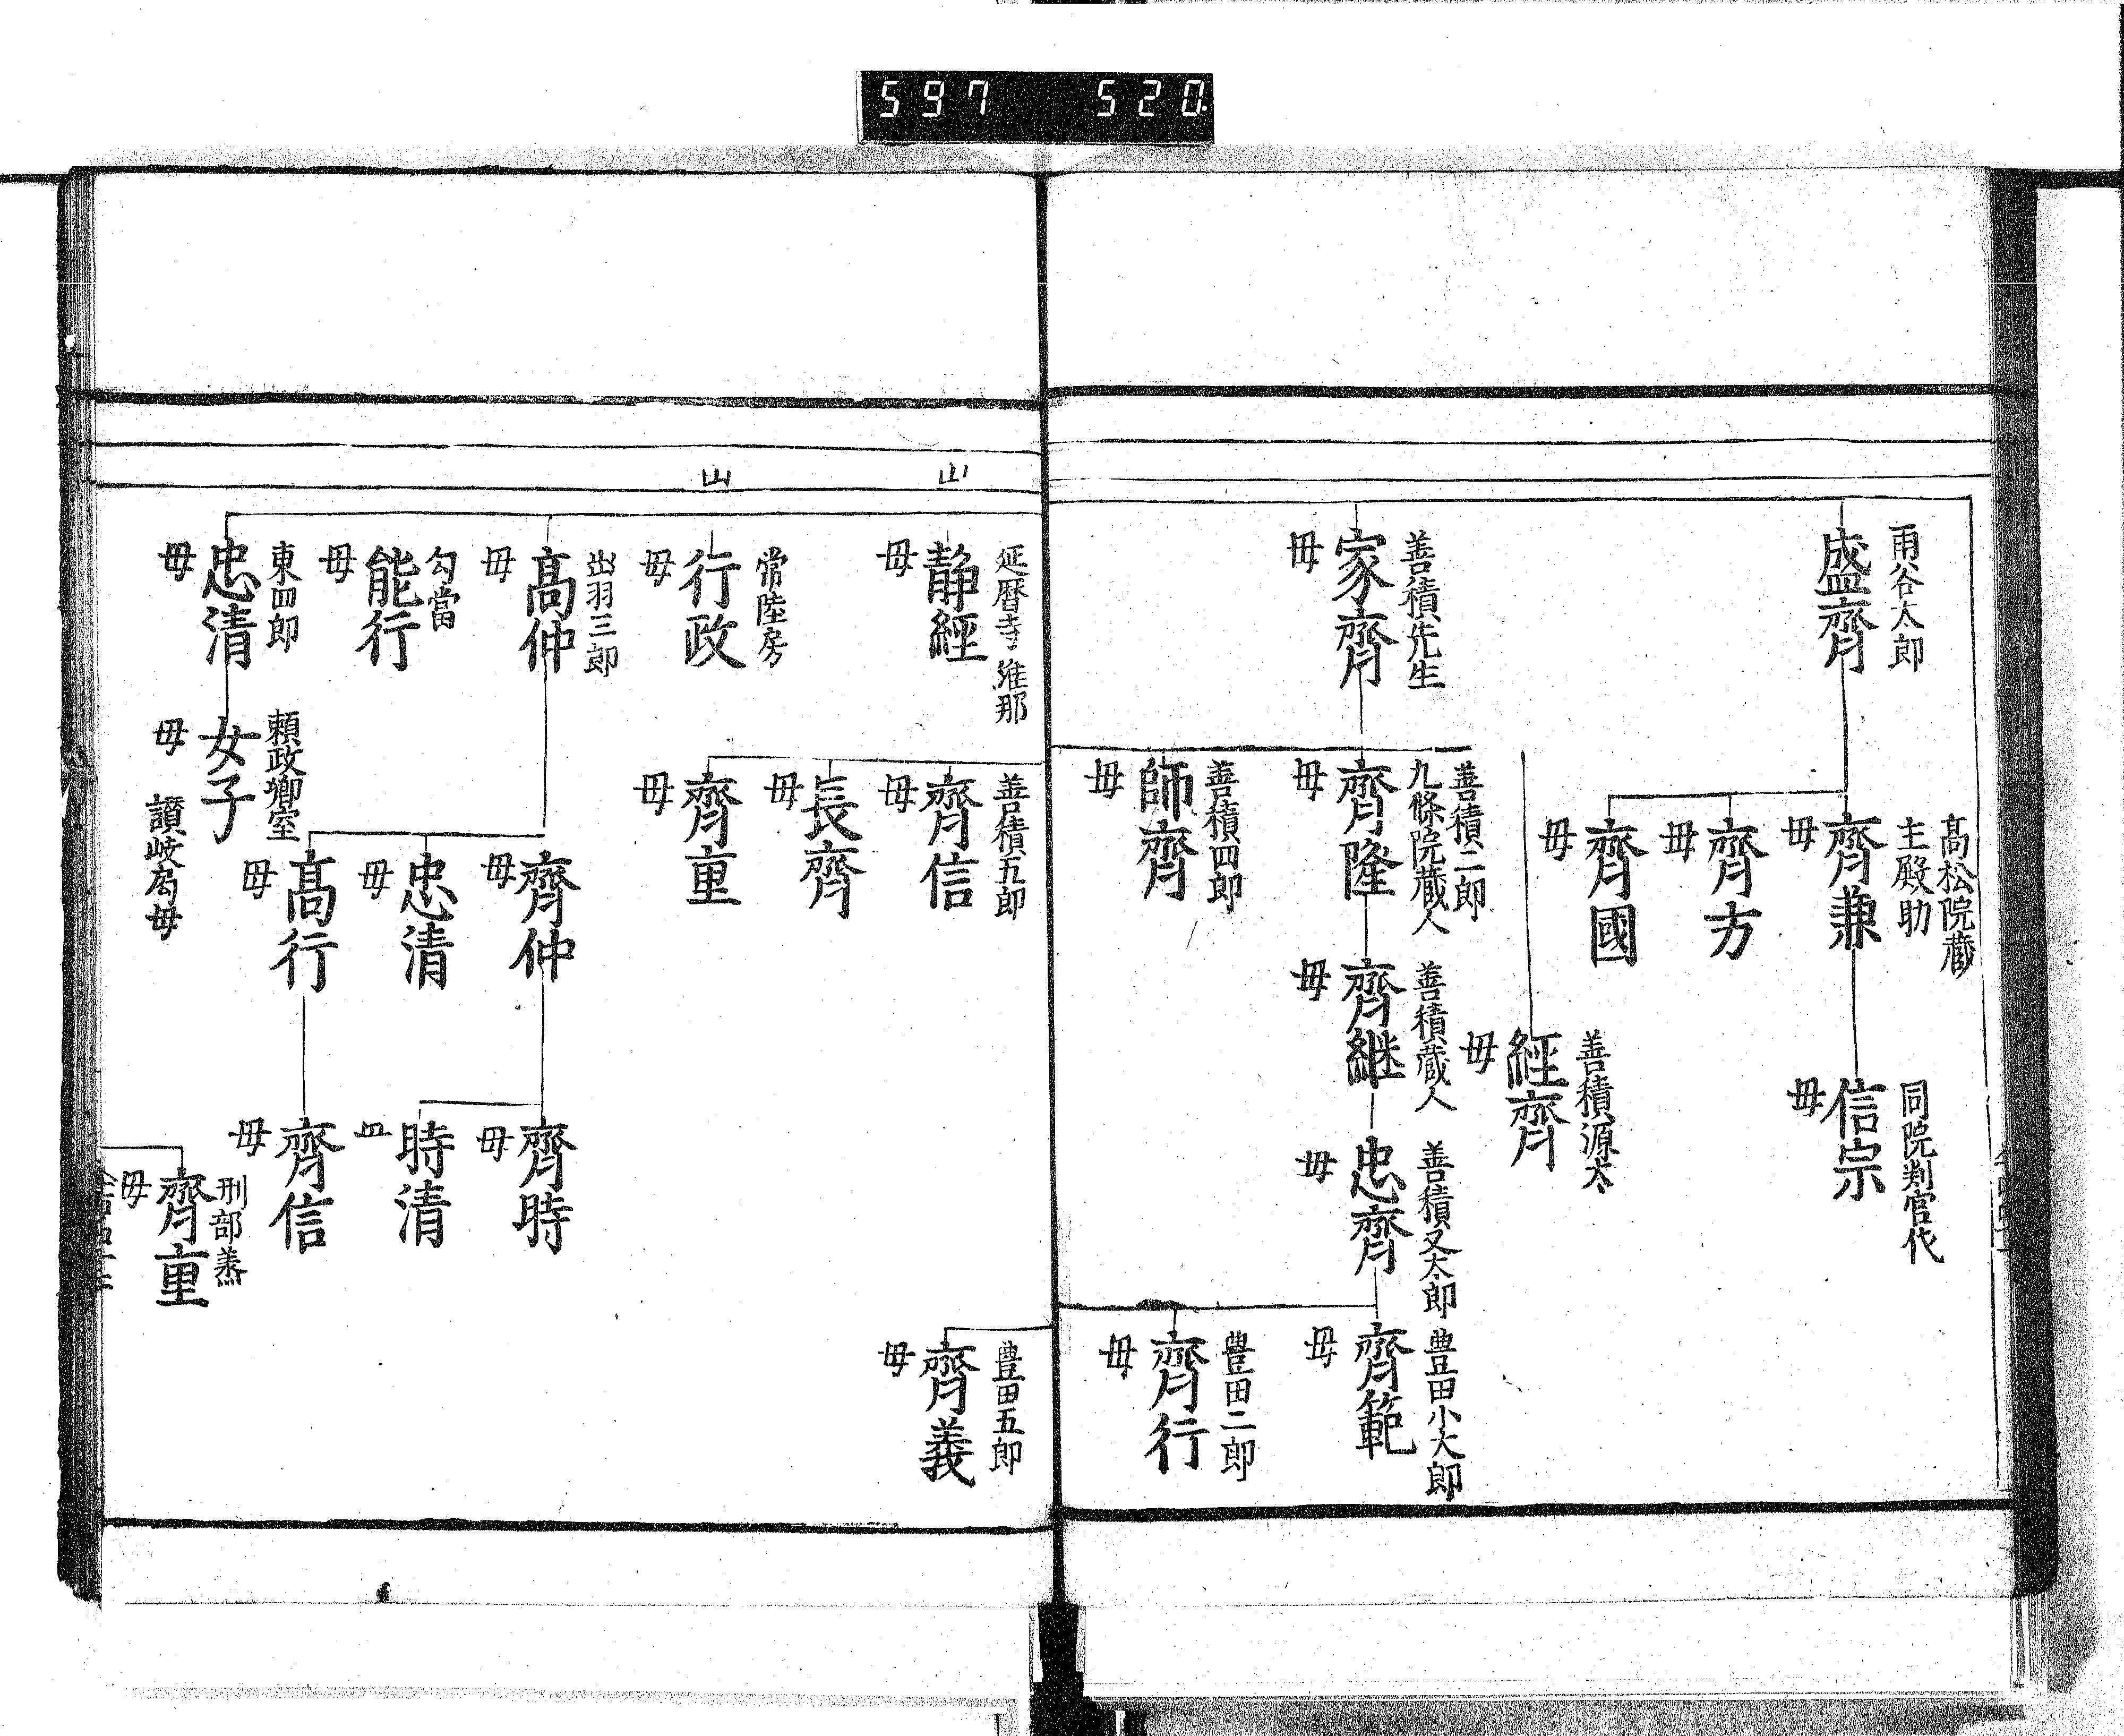 597 520
雨谷太郎
盛齊
髙松院蔵
主殿助
齊兼
母
齊方
母
齊國
母
同院判官代
信宗
母
善積先生
家齊
母
善積源太
經齊
母
善積二郎
九條院蔵人
齊隆
母
善積四郎
師齊
母
善積蔵人
齊継
母
善積又太郎
忠齊
母
豊田小太郎
齊範
母
豊田二郎
齊行
母
山
延暦寺維那
静經
母
山
常陸房
行政
母
出羽三郎
髙仲
母
勾當
能行
母
東四郎
忠清
母
善積五郎
齊信
母
長齊
母
齊重
母
頼政卿室
女子
母
讃岐局母
齊仲
母
忠清
母
髙行
母
齊時
母
時清
齊信
母
刑部丞
齊重
母
豊田五郎
齊義
母